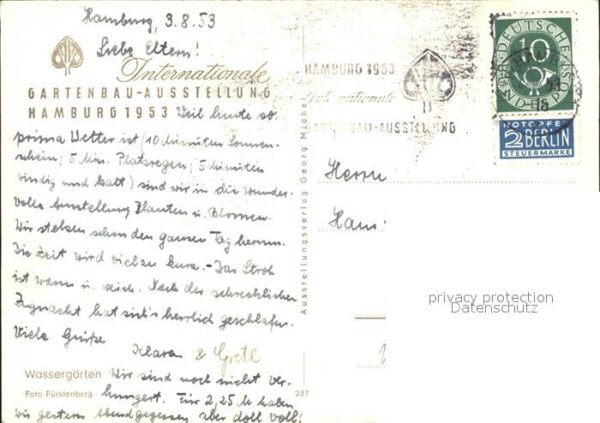 Hamburg, 3.8.53
Liebe Eltern!
Internationale
GARTENBAU-AUSSTELLUNG
HAMBURG 1953 Weil heute so
prima Wetter ist (10 Minuten Sonnen-
schein, 5 Min. Platzregen, 5 Minuten
windig und kalt) sind wir in die wunder-
volle Ausstellung Planten u. Blomen.
Wir stelzen schon den ganzen Tag herum.
Die Zeit wird viel zu kurz. - Das Stroh
ist warm u. weich. Nach der schrecklichen
Zugnacht hat sich's herrlich geschlafen.
Viele Grüße
Klara & Gretl
Wassergärten Wir sind noch nicht ver-
Foto Fürstenberg hungert. Für 2,25 M haben 237
wir gestern Abend gegessen aber doll voll!
Ausstellungsverlag Georg Michel
HAMBURG 1953
Internationale
GARTENBAU-AUSSTELLUNG
DEUTSCHE BUNDESPOST
10
NOTOPFER
2 BERLIN
STEUERMARKE
Herrn
Hans
privacy protection
Datenschutz